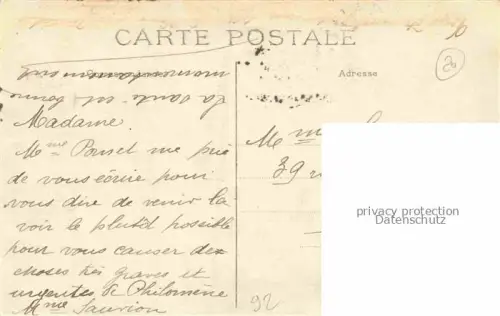 CARTE POSTALE
Adresse
20
Madame
Mme Pousel me prie
de vous écrire pour
vous dire de venir la
voir le plutôt possible
pour vous causer des
choses très graves et
urgentes de Philomène
Mme Saurion
la santé est bonne
Mme
39
privacy protection
Datenschutz
92